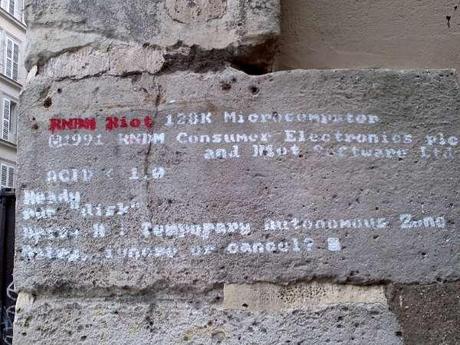 RNDM Riot 128K Microcomputer
©1991 RNDM Consumer Electronics plc
and Riot Software Ltd
ACID < 1.0
Ready
run "disk"
Temporary Autonomous Zone
Retry, ignore or cancel?